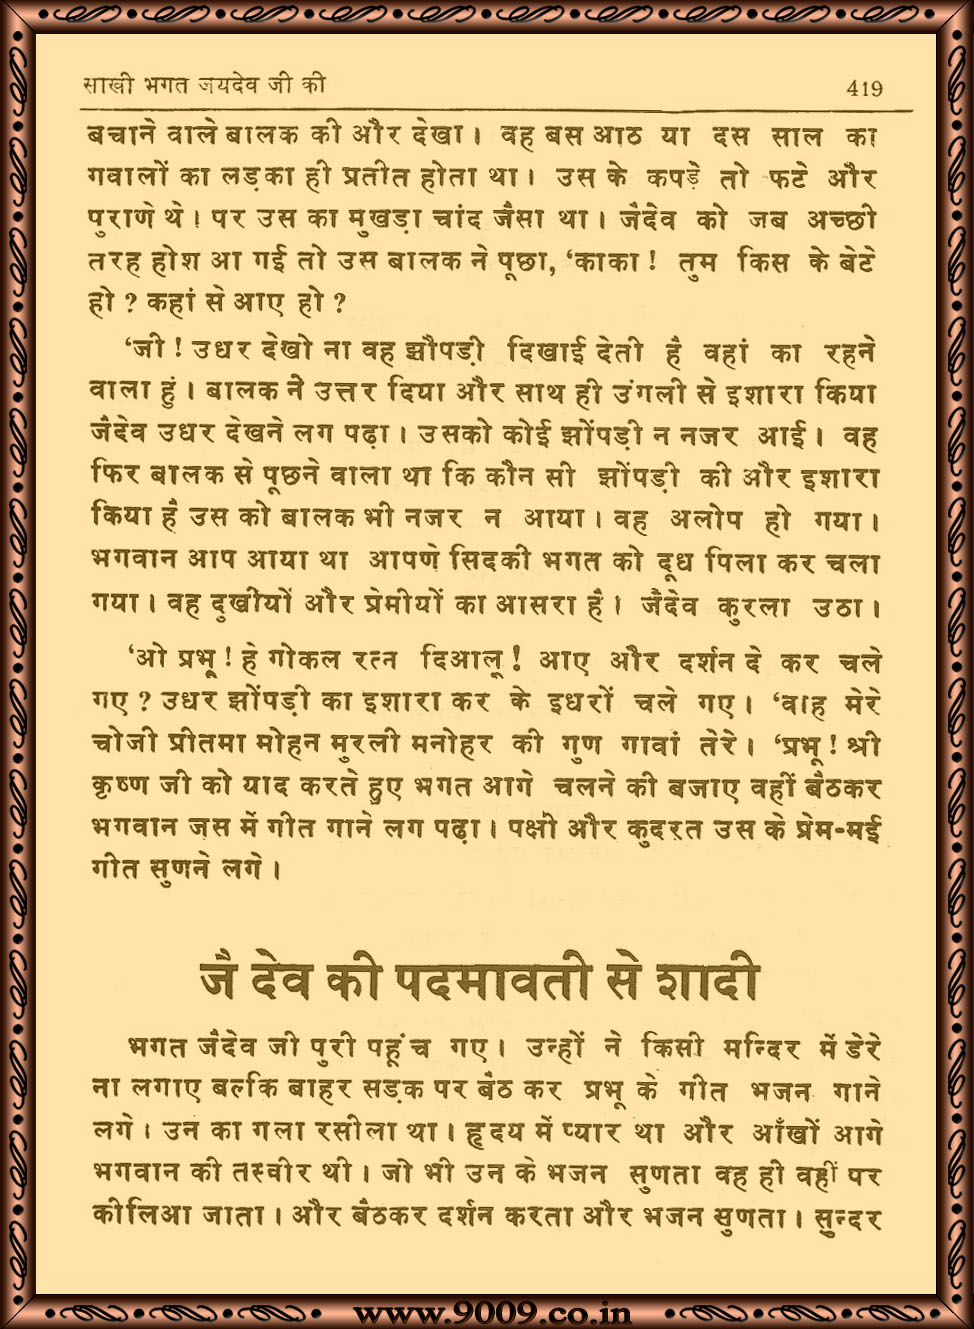 साखी भगत जयदेव जी की 419
बचाने वाले बालक की और देखा । वह बस आठ या दस साल का
गवालों का लड़का ही प्रतीत होता था । उस के कपड़े तो फटे और
पुराणे थे । पर उस का मुखड़ा चांद जैसा था । जैदेव को जब अच्छी
तरह होश आ गई तो उस बालक ने पूछा, ‘काका ! तुम किस के बेटे
हो ? कहां से आए हो ?
‘जी ! उधर देखो ना वह झौपड़ी दिखाई देती है वहां का रहने
वाला हूं । बालक ने उत्तर दिया और साथ ही उंगली से इशारा किया
जैदेव उधर देखने लग पढ़ा । उसको कोई झोंपड़ी न नजर आई । वह
फिर बालक से पूछने वाला था कि कौन सी झोंपड़ी की और इशारा
किया है उस को बालक भी नजर न आया । वह अलोप हो गया ।
भगवान आप आया था आपणे सिदकी भगत को दूध पिला कर चला
गया । वह दुखीयों और प्रेमीयों का आसरा है । जैदेव कुरला उठा ।
‘ओ प्रभू ! हे गोकल रत्न दिआलू ! आए और दर्शन दे कर चले
गए ? उधर झोंपड़ी का इशारा कर के इधरों चले गए । ‘वाह मेरे
चोजी प्रीतमा मोहन मुरली मनोहर की गुण गावां तेरे । ‘प्रभू ! श्री
कृष्ण जी को याद करते हुए भगत आगे चलने की बजाए वहीं बैठकर
भगवान जस में गीत गाने लग पढ़ा । पक्षी और कुदरत उस के प्रेम-मई
गीत सुणने लगे ।
जै देव की पदमावती से शादी
भगत जैदेव जी पुरी पहूंच गए । उन्हों ने किसी मन्दिर में डेरे
ना लगाए बल्कि बाहर सड़क पर बैठ कर प्रभू के गीत भजन गाने
लगे । उन का गला रसीला था । हृदय में प्यार था और आँखों आगे
भगवान की तस्वीर थी । जो भी उन के भजन सुणता वह ही वहीं पर
कीलिआ जाता । और बैठकर दर्शन करता और भजन सुणता । सुन्दर
www.9009.co.in